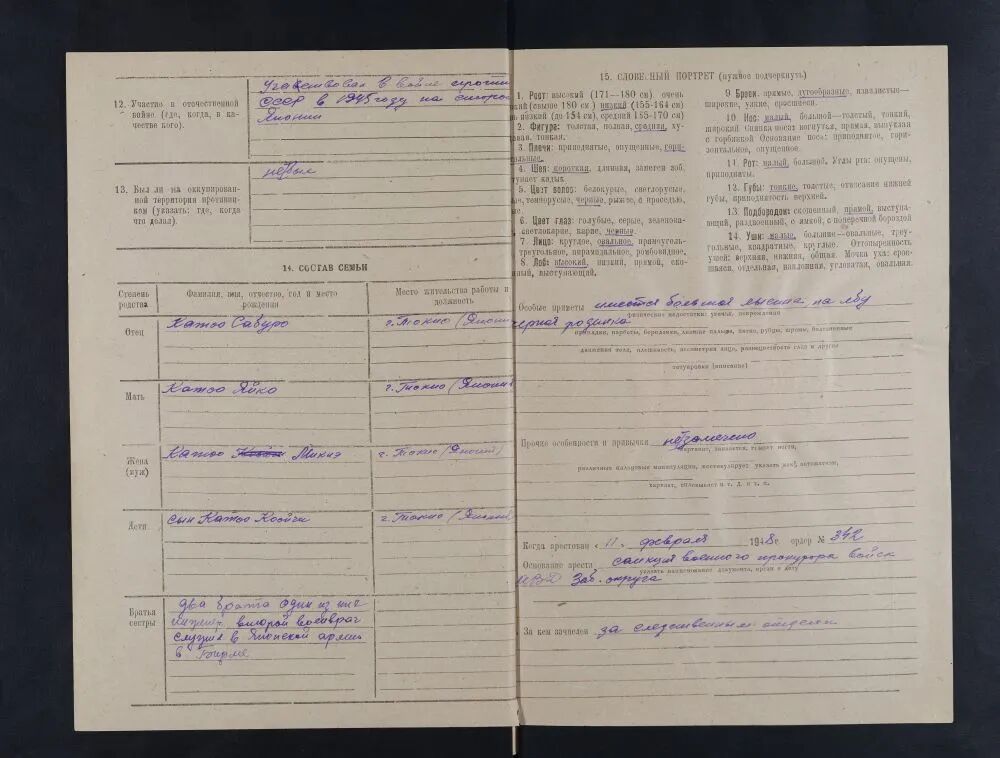 12. Участие в отечественной
войне (где, когда, в ка-
честве кого).
Участвовал в войне против
СССР в 1945 году на стороне
Японии
13. Был ли на оккупирован-
ной территории противни-
ком (указать: где, когда
что делал).
не был
14. СОСТАВ СЕМЬИ
Степень
родства
Фамилия, имя, отчество, год и место
рождения
Место жительства работы и
должность
Отец
Катоо Сабуро
г. Токио (Япония
Мать
Катоо Яйко
г. Токио (Япония
Жена
(муж)
Катоо Микиэ
г. Токио (Япония)
Дети
сын Катоо Коойчи
г. Токио (Япония
Братья
сестры
два брата один из них
инженер, второй военврач
служил в Японской армии
в Бирме
15. СЛОВЕСНЫЙ ПОРТРЕТ (нужное подчеркнуть)
1. Рост: высокий (171—180 см) очень
кий (свыше 180 см) низкий (155-164 см)
нь низкий (до 154 см), средний 165-170 см)
2. Фигура: толстая, полная, средняя, ху-
вая, тонкая.
3. Плечи: приподнятые, опущенные, гори-
зонтальные.
4. Шея: короткая, длинная, заметен зоб,
тупает кадык
5. Цвет волос: белокурые, светлорусые,
ые, темнорусые, черные, рыжие, с проседью,
ые.
6. Цвет глаз: голубые, серые, зеленова-
светлокарие, карие, черные.
7. Лицо: круглое, овальное, прямоуголь-
треугольное, пирамидальное, ромбовидное.
8. Лоб: высокий, низкий, прямой, ско-
нный, выступающий.
9 Брови: прямые, дугообразные, извилистые—
широкие, узкие, сросшиеся.
10. Нос: малый, большой—толстый, тонкий,
широкий Спинка носа: вогнутая, прямая, выпуклая
с горбинкой Основание носа: приподнятое, гори-
зонтальное, опущенное.
11. Рот: малый, большой. Углы рта: опущены,
приподняты.
12. Губы: тонкие, толстые, отвисание нижней
губы, приподнятость верхней.
13. Подбородок: скошенный, прямой, выступа-
ющий, раздвоенный, с ямкой, с поперечной бороздой
14. Уши: малые, большие—овальные, треу-
гольные, квадратные, круглые. Оттопыренность
ушей: верхняя, нижняя, общая. Мочка уха: срос-
шаяся, отдельная, наклонная, угловатая, овальная.
Особые приметы имеется большая лысина на лбу
физические недостатки: увечья, повреждения
черная родинка
движения тела, плешивость, асимметрия лица, разноцветность глаз и другие
татуировки (описание)
Прочие особенности и привычки не замечено
картавит, заикается, грызет ногти,
хвастает, сплевывает и т. д. и т. п.
Когда арестован „11„ февраля 1948 г. ордер № 342
Основание ареста санкция военного прокурора войск
указать наименование документа, орган и дату
МВД Заб. округа
За кем зачислен за следственным отделом